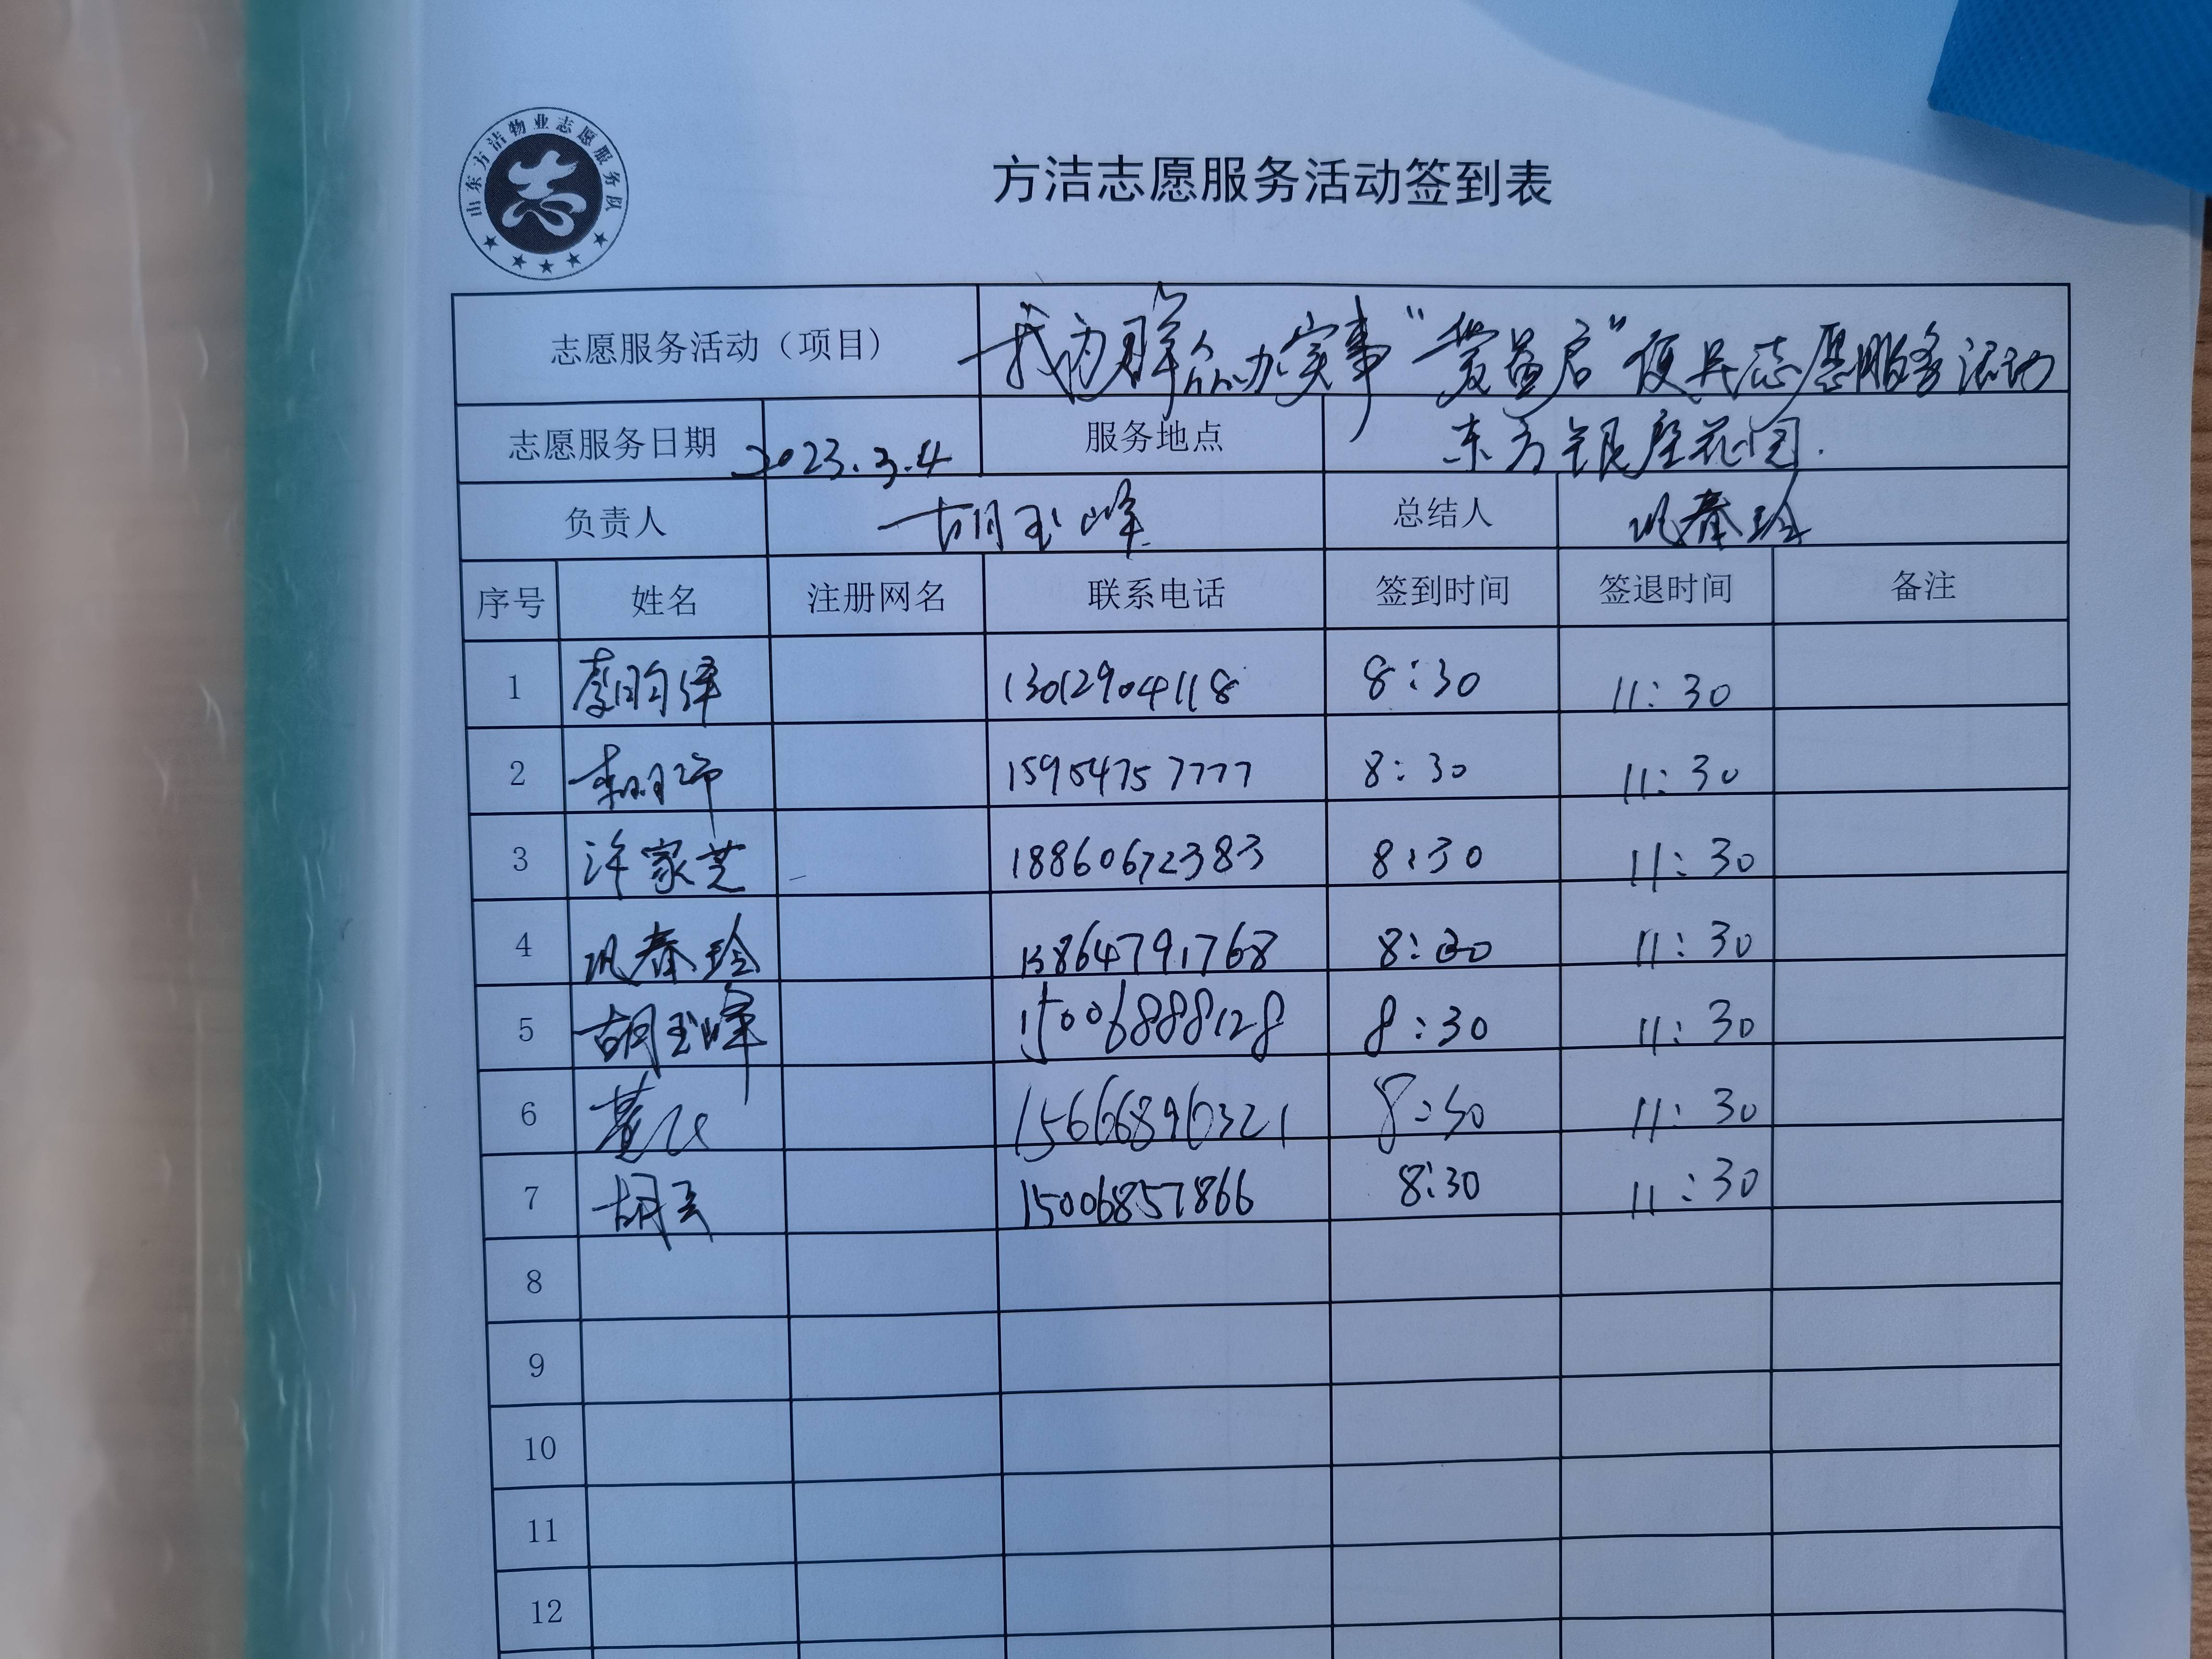 山东方洁物业志愿服务队
志
方洁志愿服务活动签到表
志愿服务活动（项目） 我为群众办实事“爱益启”便民志愿服务活动
志愿服务日期 2023.3.4 服务地点 东方银座花园.
负责人 胡玉峰 总结人 巩春玲
序号 姓名 注册网名 联系电话 签到时间 签退时间 备注
1 13012904118 8:30 11:30
2 15954757777 8:30 11:30
3 许家芝 18860672383 8:30 11:30
4 巩春玲 13864791768 8:30 11:30
5 胡玉峰 15006888128 8:30 11:30
6 15668960321 8:30 11:30
7 胡云 15006857866 8:30 11:30
8
9
10
11
12